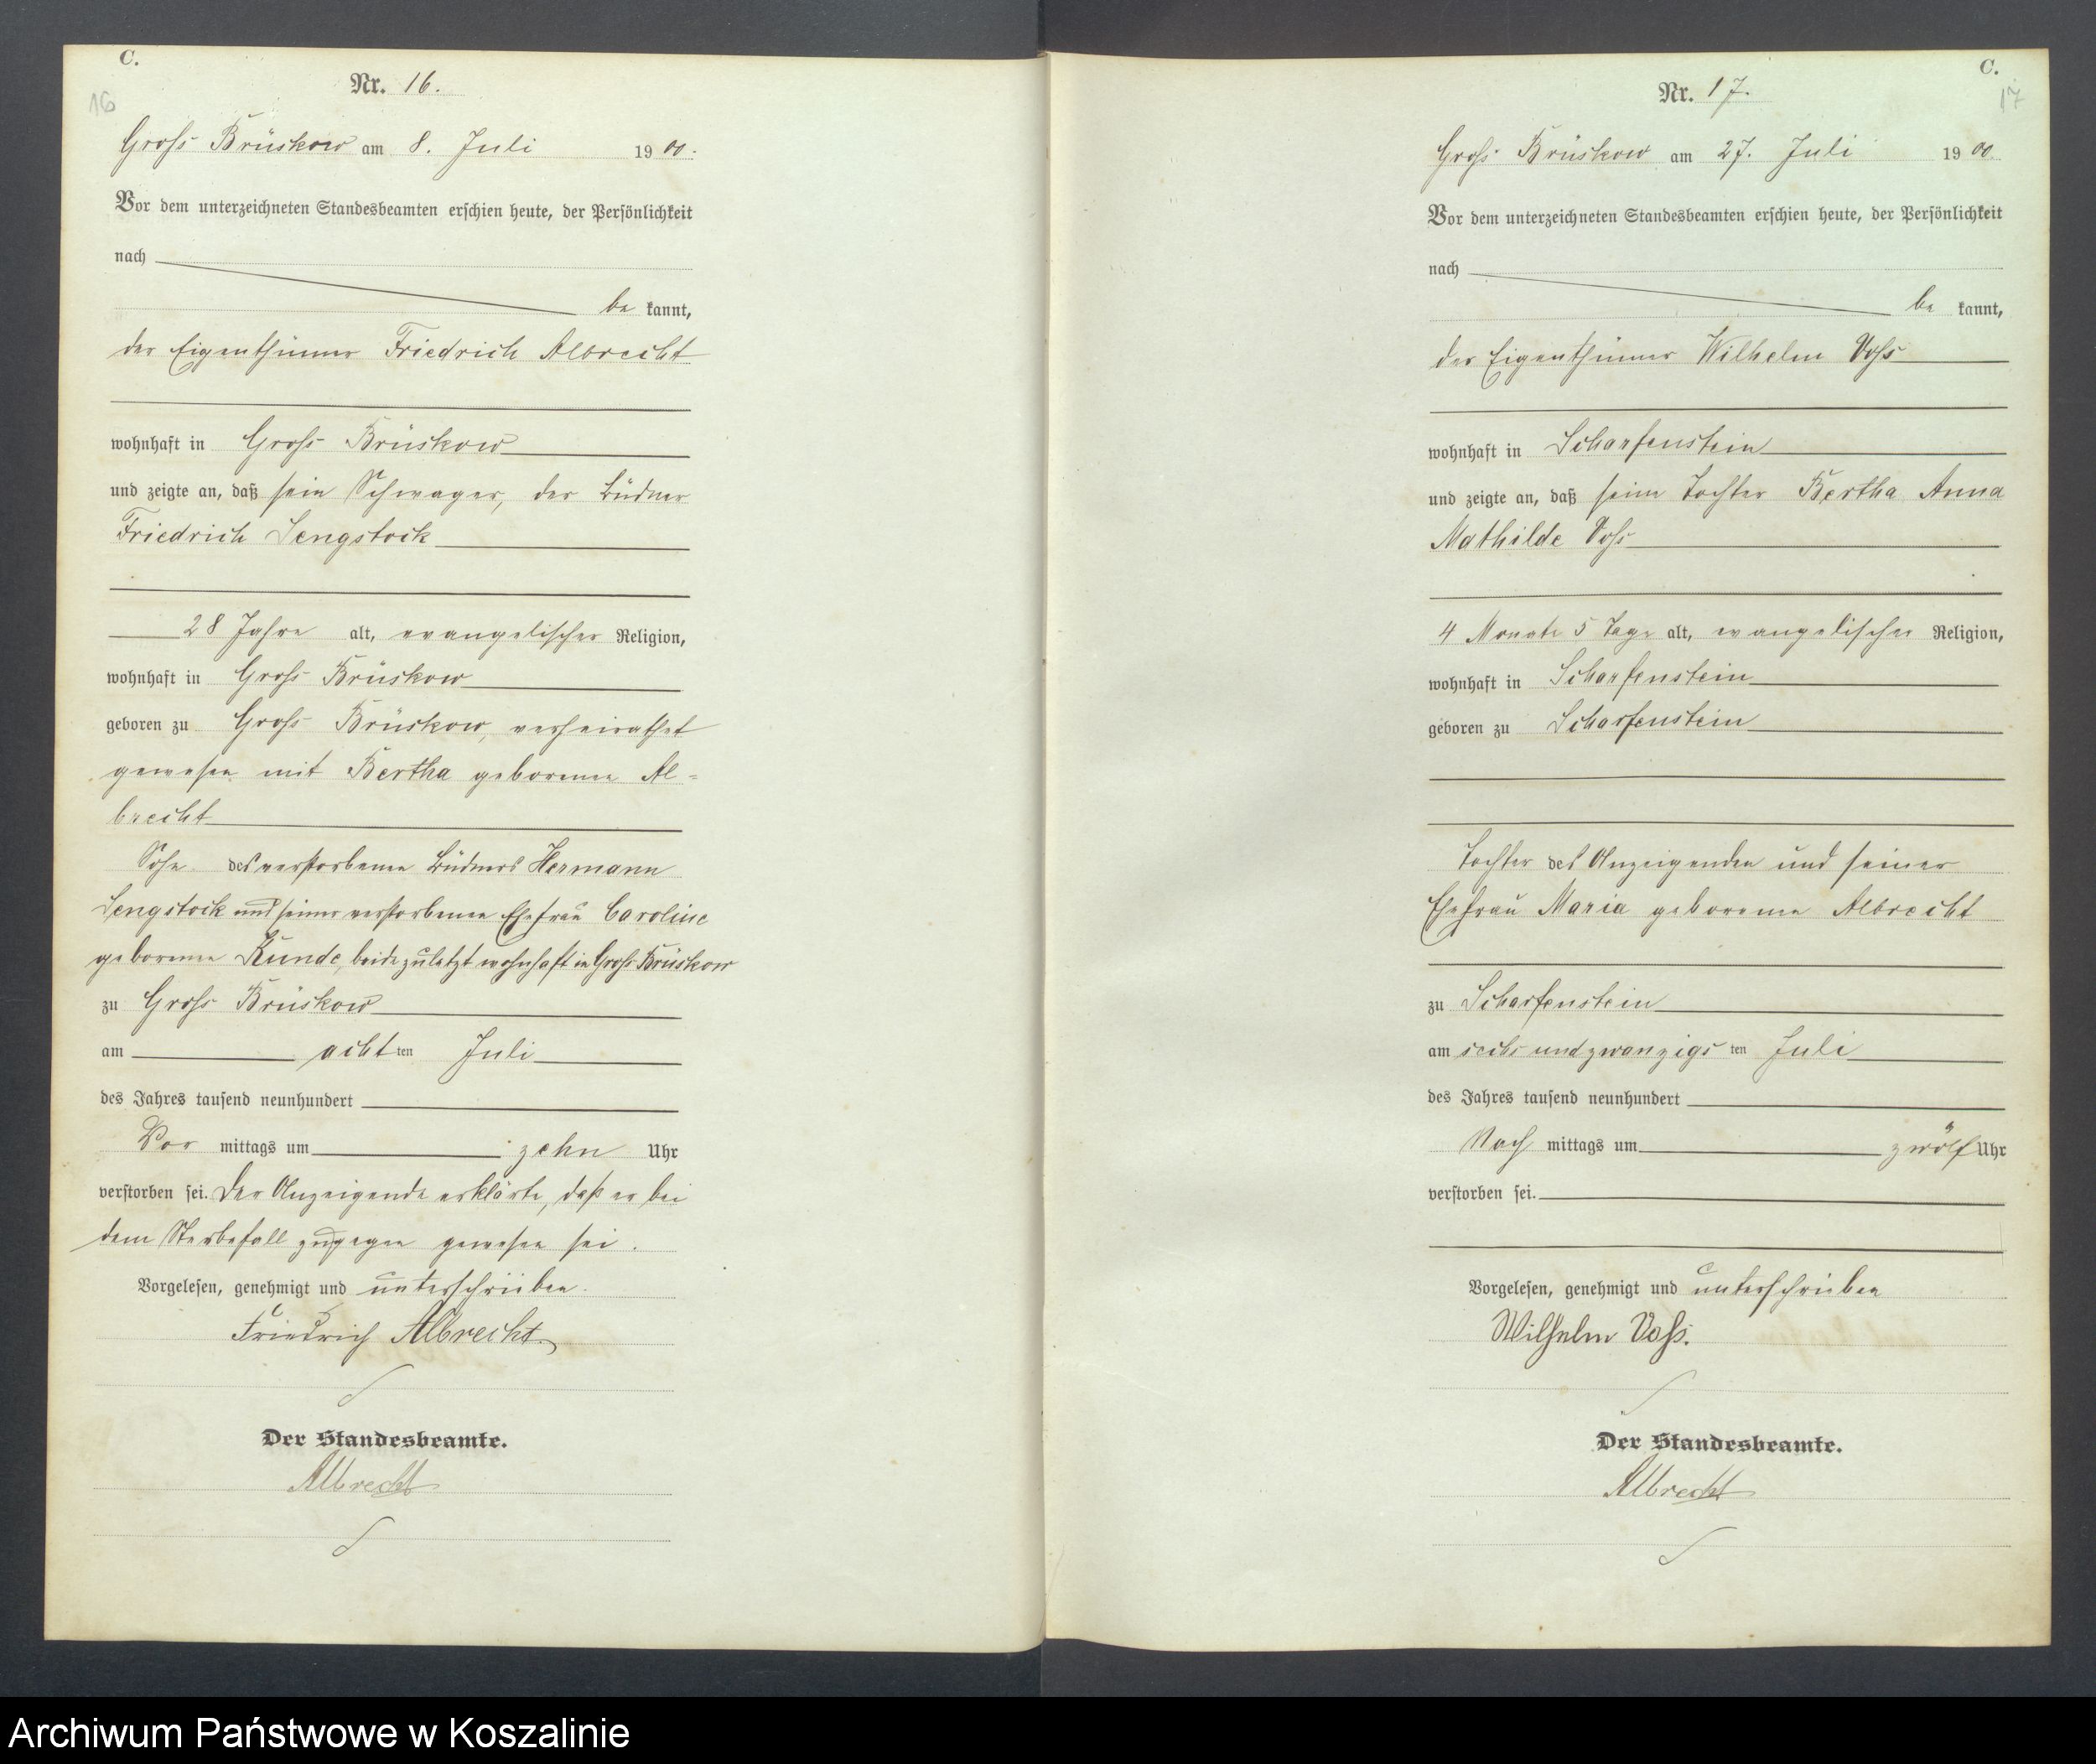 C.
16
Nr. 16.
Gross Brüskow am 8. Juli 1900.
Vor dem unterzeichneten Standesbeamten erschien heute, der Persönlichkeit
nach
be kannt,
der Eigenthümer Friedrich Albrecht
wohnhaft in Gross Brüskow
und zeigte an, daß sein Schwager, der Büdner
Friedrich Lengstock
28 Jahre alt, evangelischer Religion,
wohnhaft in Gross Brüskow
geboren zu Gross Brüskow, verheirathet
gewesen mit Bertha geborenen Al-
brecht
Sohn des verstorbenen Büdners Hermann
Lengstock und seiner verstorbenen Ehefrau Caroline
geborenen Kunde, beide zuletzt wohnhaft in Gross Brüskow
zu Gross Brüskow
am achtten Juli
des Jahres tausend neunhundert
Vor mittags um zehn Uhr
verstorben sei. Der Anzeigende erklärte, daß er bei
dem Sterbefall zugegen gewesen sei.
Vorgelesen, genehmigt und unterschrieben.
Friedrich Albrecht.
Der Standesbeamte.
Albrecht
C.
17
Nr. 17.
Gross Brüskow am 27. Juli 1900
Vor dem unterzeichneten Standesbeamten erschien heute, der Persönlichkeit
nach
be kannt,
der Eigenthümer Wilhelm Voss
wohnhaft in Scharfenstein
und zeigte an, daß seine Tochter Bertha Anna
Mathilde Voss
4 Monate 5 Tage alt, evangelischer Religion,
wohnhaft in Scharfenstein
geboren zu Scharfenstein
Tochter des Anzeigenden und seiner
Ehefrau Maria geborenen Albrecht
zu Scharfenstein
am sechs und zwanzigsten Juli
des Jahres tausend neunhundert
Nach mittags um zwölf Uhr
verstorben sei.
Vorgelesen, genehmigt und unterschrieben
Wilhelm Voss.
Der Standesbeamte.
Albrecht
Archiwum Państwowe w Koszalinie